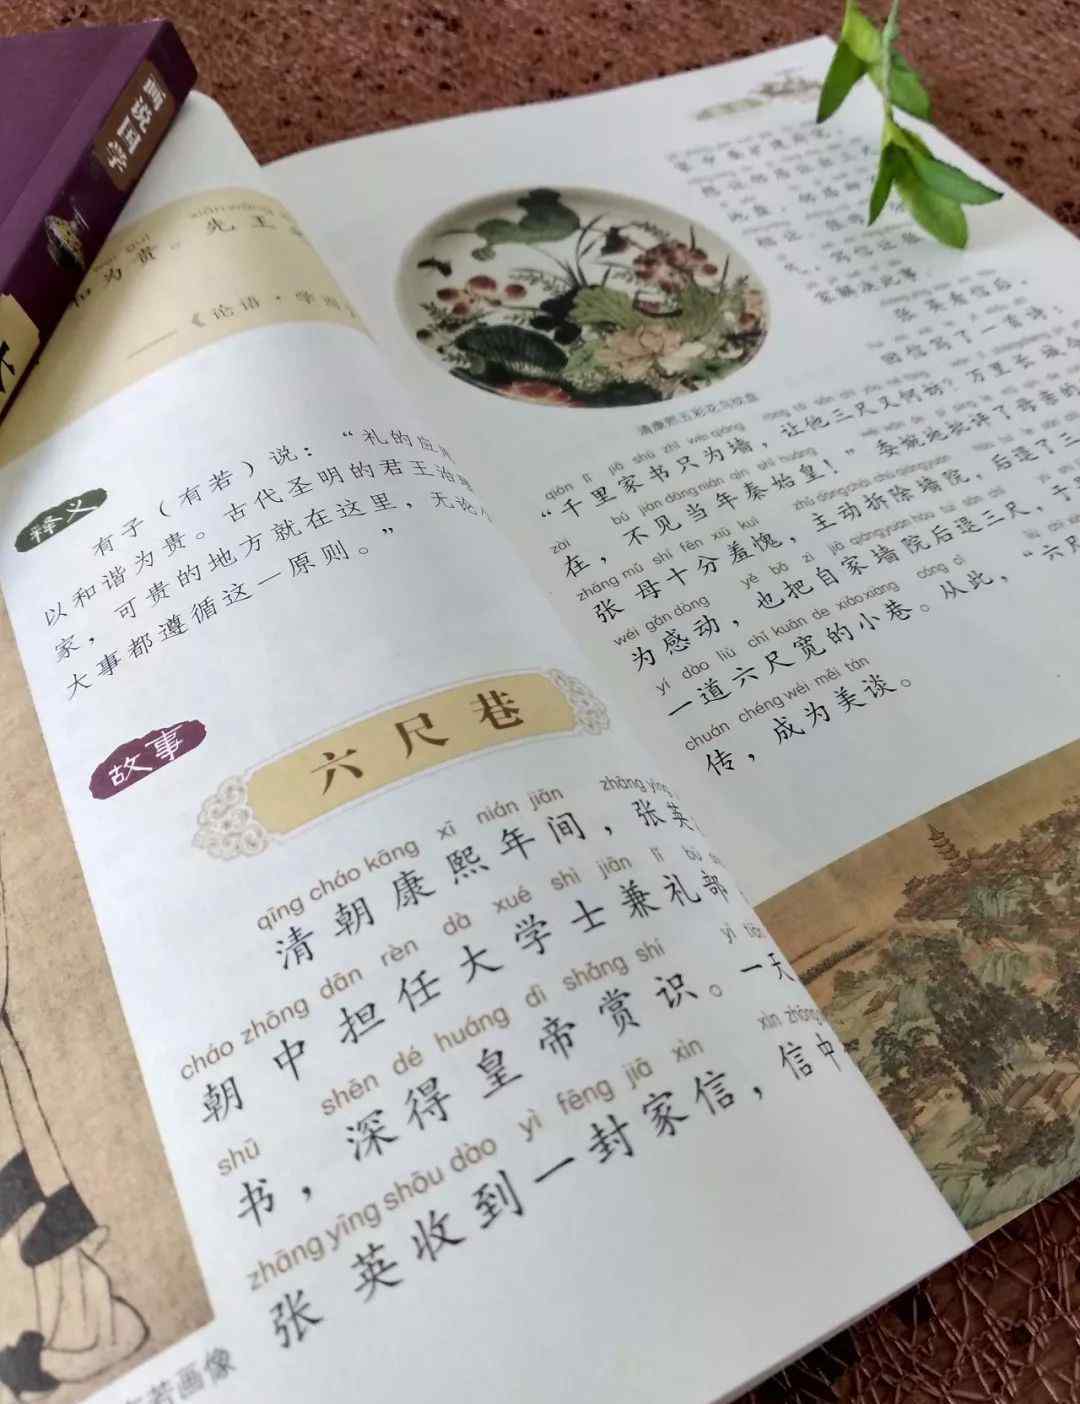 画说国学
xiān wáng
和为贵。先王
——《论语·学而
释义
有子（有若）说：“礼的应用
以和谐为贵。古代圣明的君王治理
家，可贵的地方就在这里，无论
大事都遵循这一原则。”
故事
六尺巷
qīng cháo kāng xī nián jiān zhāng yīng
清朝康熙年间，张英
cháo zhōng dān rèn dà xué shì jiān lǐ bù
朝中担任大学士兼礼部
shū shēn dé huáng dì shǎng shí yì tiān
书，深得皇帝赏识。一天
zhāng yīng shōu dào yì fēng jiā xìn xìn zhōng
张英收到一封家信，信中
有若画像
清康熙五彩花鸟纹盘
张英看信后，
回信写了一首诗：
qiān lǐ jiā shū zhǐ wèi qiáng
“千里家书只为墙，让他三尺又何妨？万里长城今
zài bú jiàn dāng nián qín shǐ huáng
在，不见当年秦始皇！”委婉地批评了母亲的
zhāng mǔ shí fēn xiū kuì zhǔ dòng chāi chú qiáng yuàn
张母十分羞愧，主动拆除墙院，后退了三
wéi gǎn dòng yě bǎ zì jiā qiáng yuàn hòu tuì sān chǐ
为感动，也把自家墙院后退三尺，于
yí dào liù chǐ kuān de xiǎo xiàng cóng cǐ
一道六尺宽的小巷。从此，“六尺
chuán chéng wéi měi tán
传，成为美谈。